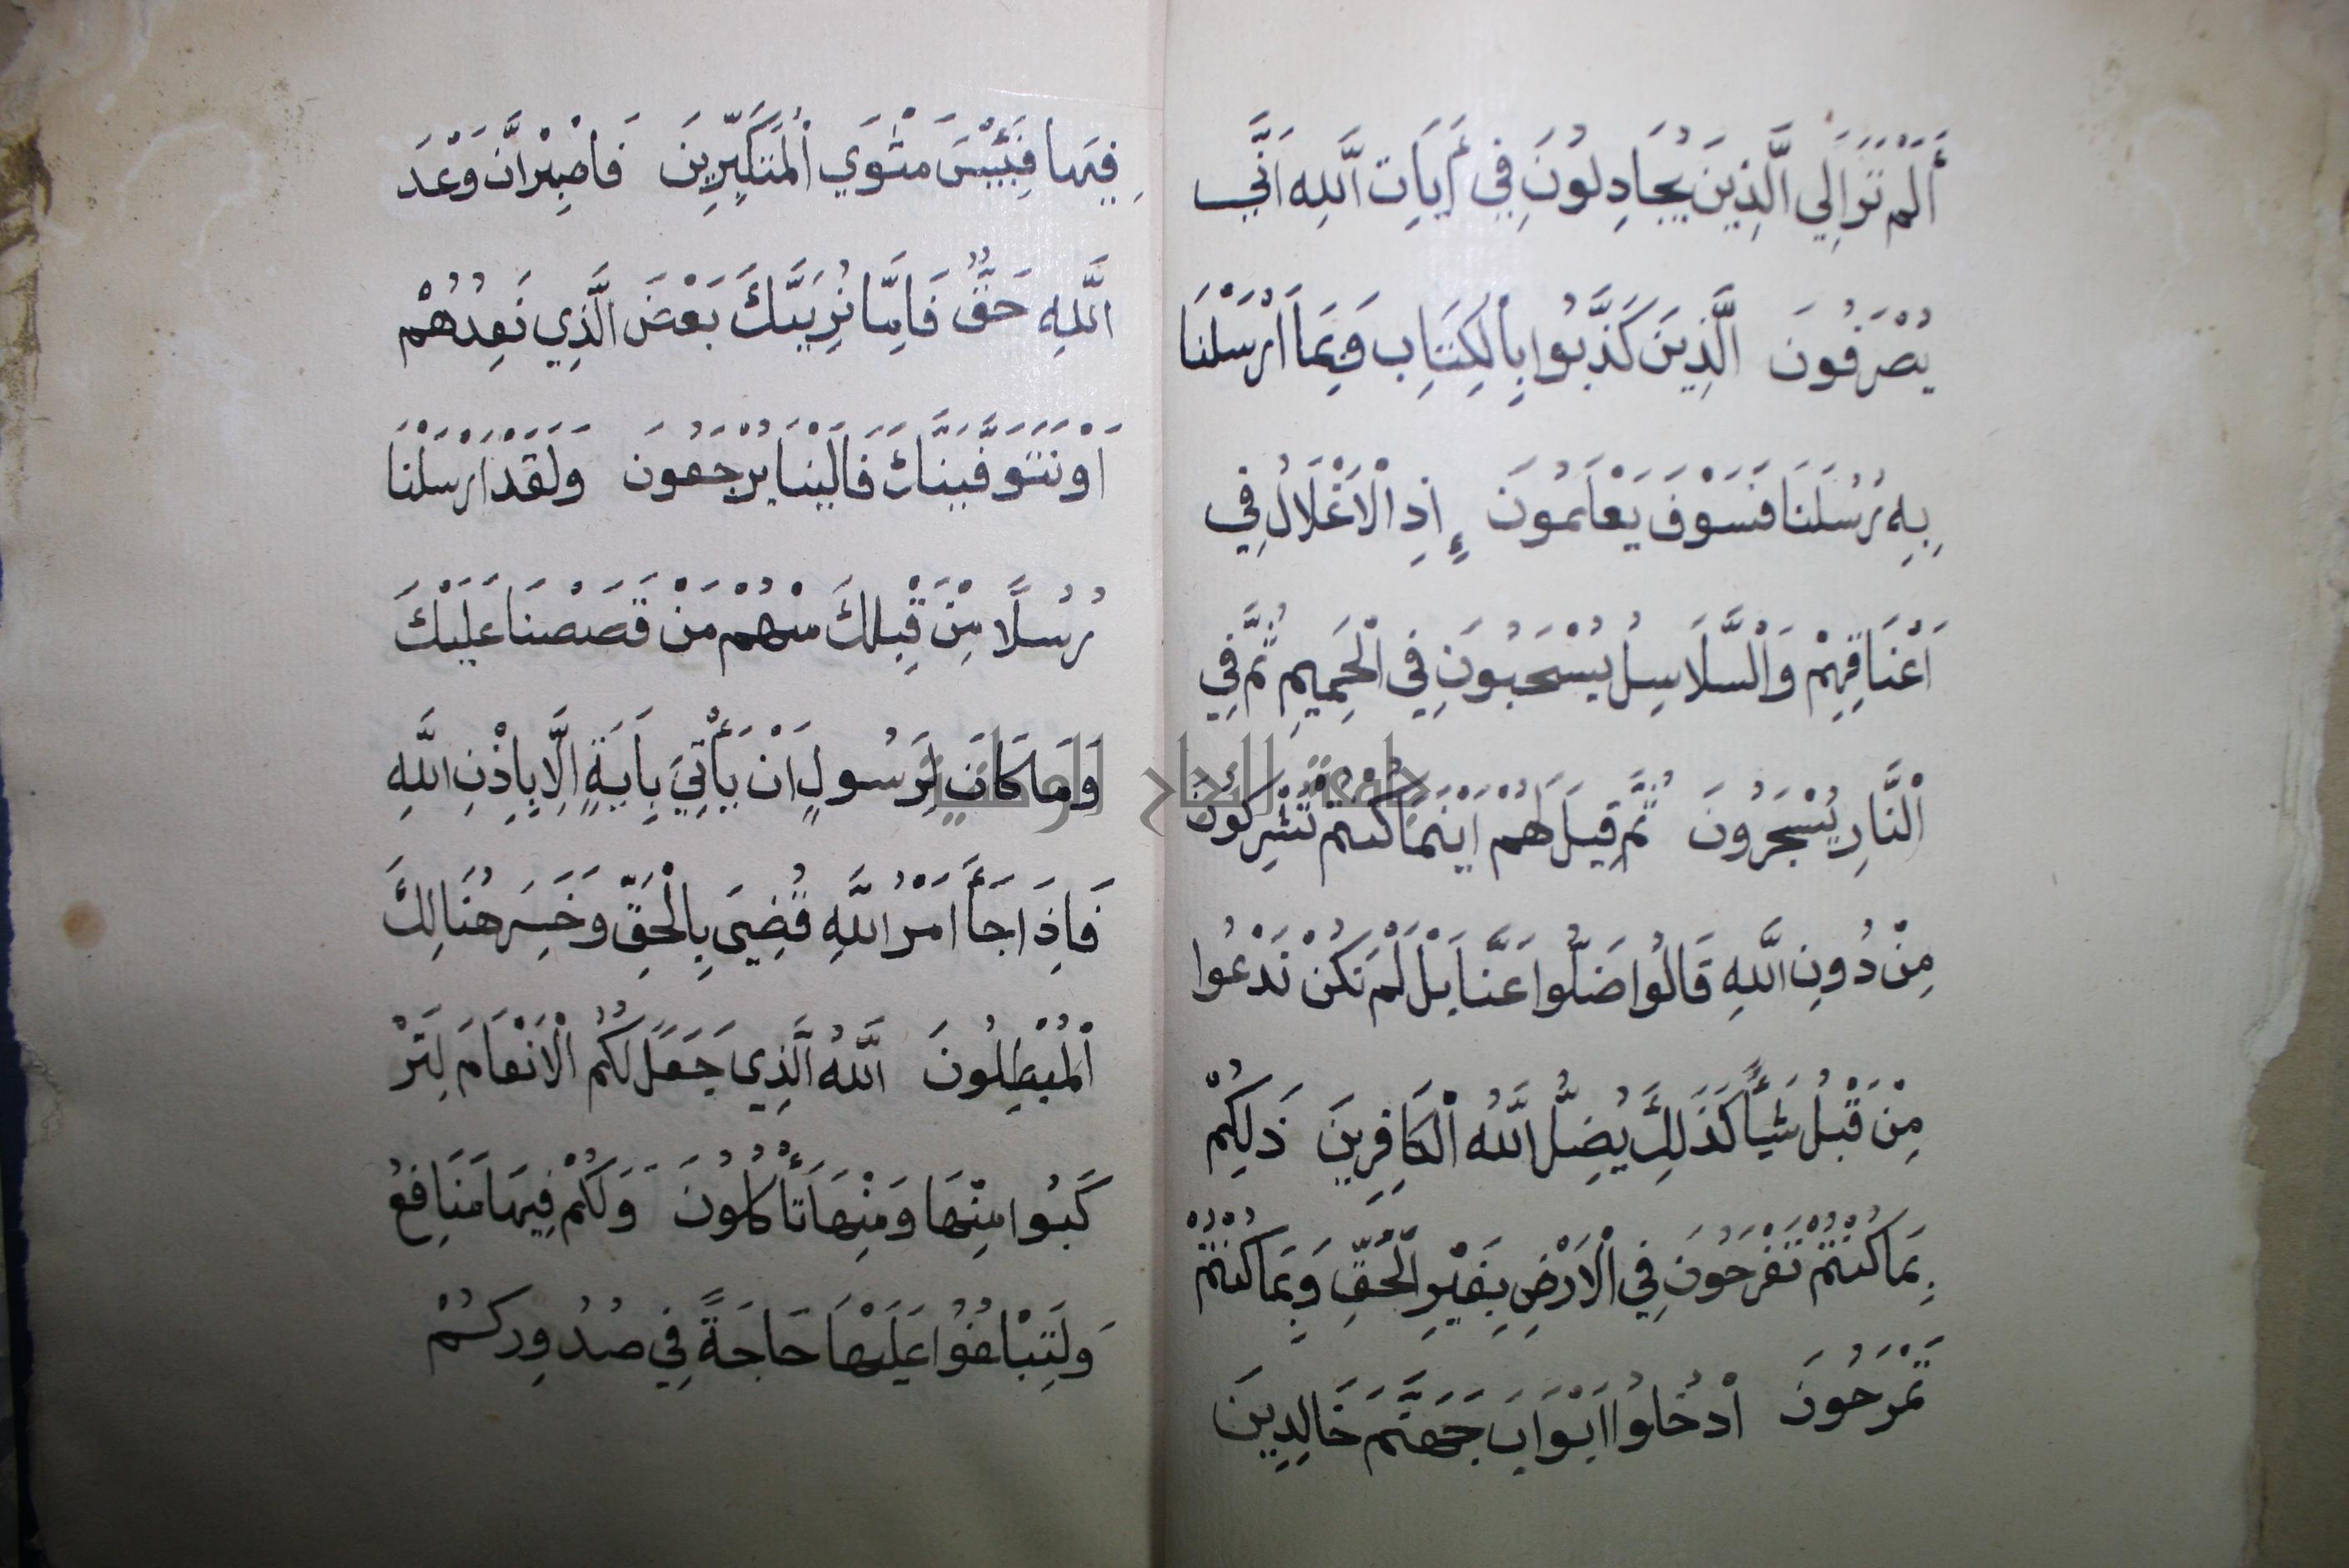 أَلَمْ تَرَ اِلَي الَّذِينَ يُجَادِلُونَ فِي أَيَاتِ اَللهِ اَنَّي
يُصْرَفُونَ الَّذِينَ كَذَّبُوا بِالْكِتَابِ وَبِمَا اَرْسَلْنَا
بِهِ رُسُلَنَا فَسَوْفَ يَعْلَمُونَ إِذِ الْاَغْلَالُ فِي
اَعْنَاقِهِمْ وَالْسَّلَاسِلُ يُسْحَبُونَ فِي الْحَمِيمِ ثُمَّ فِي
الْنَّارِ يُسْجَرُونَ ثُمَّ قِيلَ لَهُمْ اَيْنَمَا كُنْتُمْ تُشْرِكُونَ
مِنْ دُونِ اللَّهِ قَالُوا ضَلُّوا عَنَّا بَلْ لَمْ نَكُنْ نَدْعُوا
مِنْ قَبْلُ شَيْأً كَذَلِكَ يُضِلُّ اللَّهُ الْكَافِرِينَ ذَلِكُمْ
بِمَا كُنْتُمْ تَفْرَحُونَ فِي الْاَرْضِ بِغَيْرِ الْحَقِّ وَبِمَا كُنْتُمْ
تَمْرَحُونَ اُدْخُلُوا اَبْوَابَ جَهَنَّمَ خَالِدِينَ
فِيهَا فَبِئْسَ مَثْوَي الْمُتَكَبِّرِينَ فَاصْبِرْ اِنَّ وَعْدَ
اللَّهِ حَقٌّ فَاِمَّا نُرِيَنَّكَ بَعْضَ الَّذِي نَعِدُهُمْ
اَوْ نَتَوَفَّيَنَّكَ فَاِلَيْنَا يُرْجَعُونَ وَلَقَدْ اَرْسَلْنَا
رُسُلًا مِنْ قَبْلِكَ مِنْهُمْ مَنْ قَصَصْنَا عَلَيْكَ
وَمَا كَانَ لِرَسُولٍ اَنْ يَأْتِيَ بِاَيَةٍ اِلَّا بِاِذْنِ اللَّهِ
فَاِذَا جَأَ اَمْرُ اللَّهِ قُضِيَ بِالْحَقِّ وَخَسِرَ هُنَالِكَ
الْمُبْطِلُونَ اللَّهُ الَّذِي جَعَلَ لَكُمُ الْاَنْعَامَ لِتَرْ
كَبُوا مِنْهَا وَمِنْهَا تَأْكُلُونَ وَلَكُمْ فِيهَا مَنَافِعُ
وَلِتَبْلُغُوا عَلَيْهَا حَاجَةً فِي صُدُورِكُمْ
جامعة النجاح الوطنية